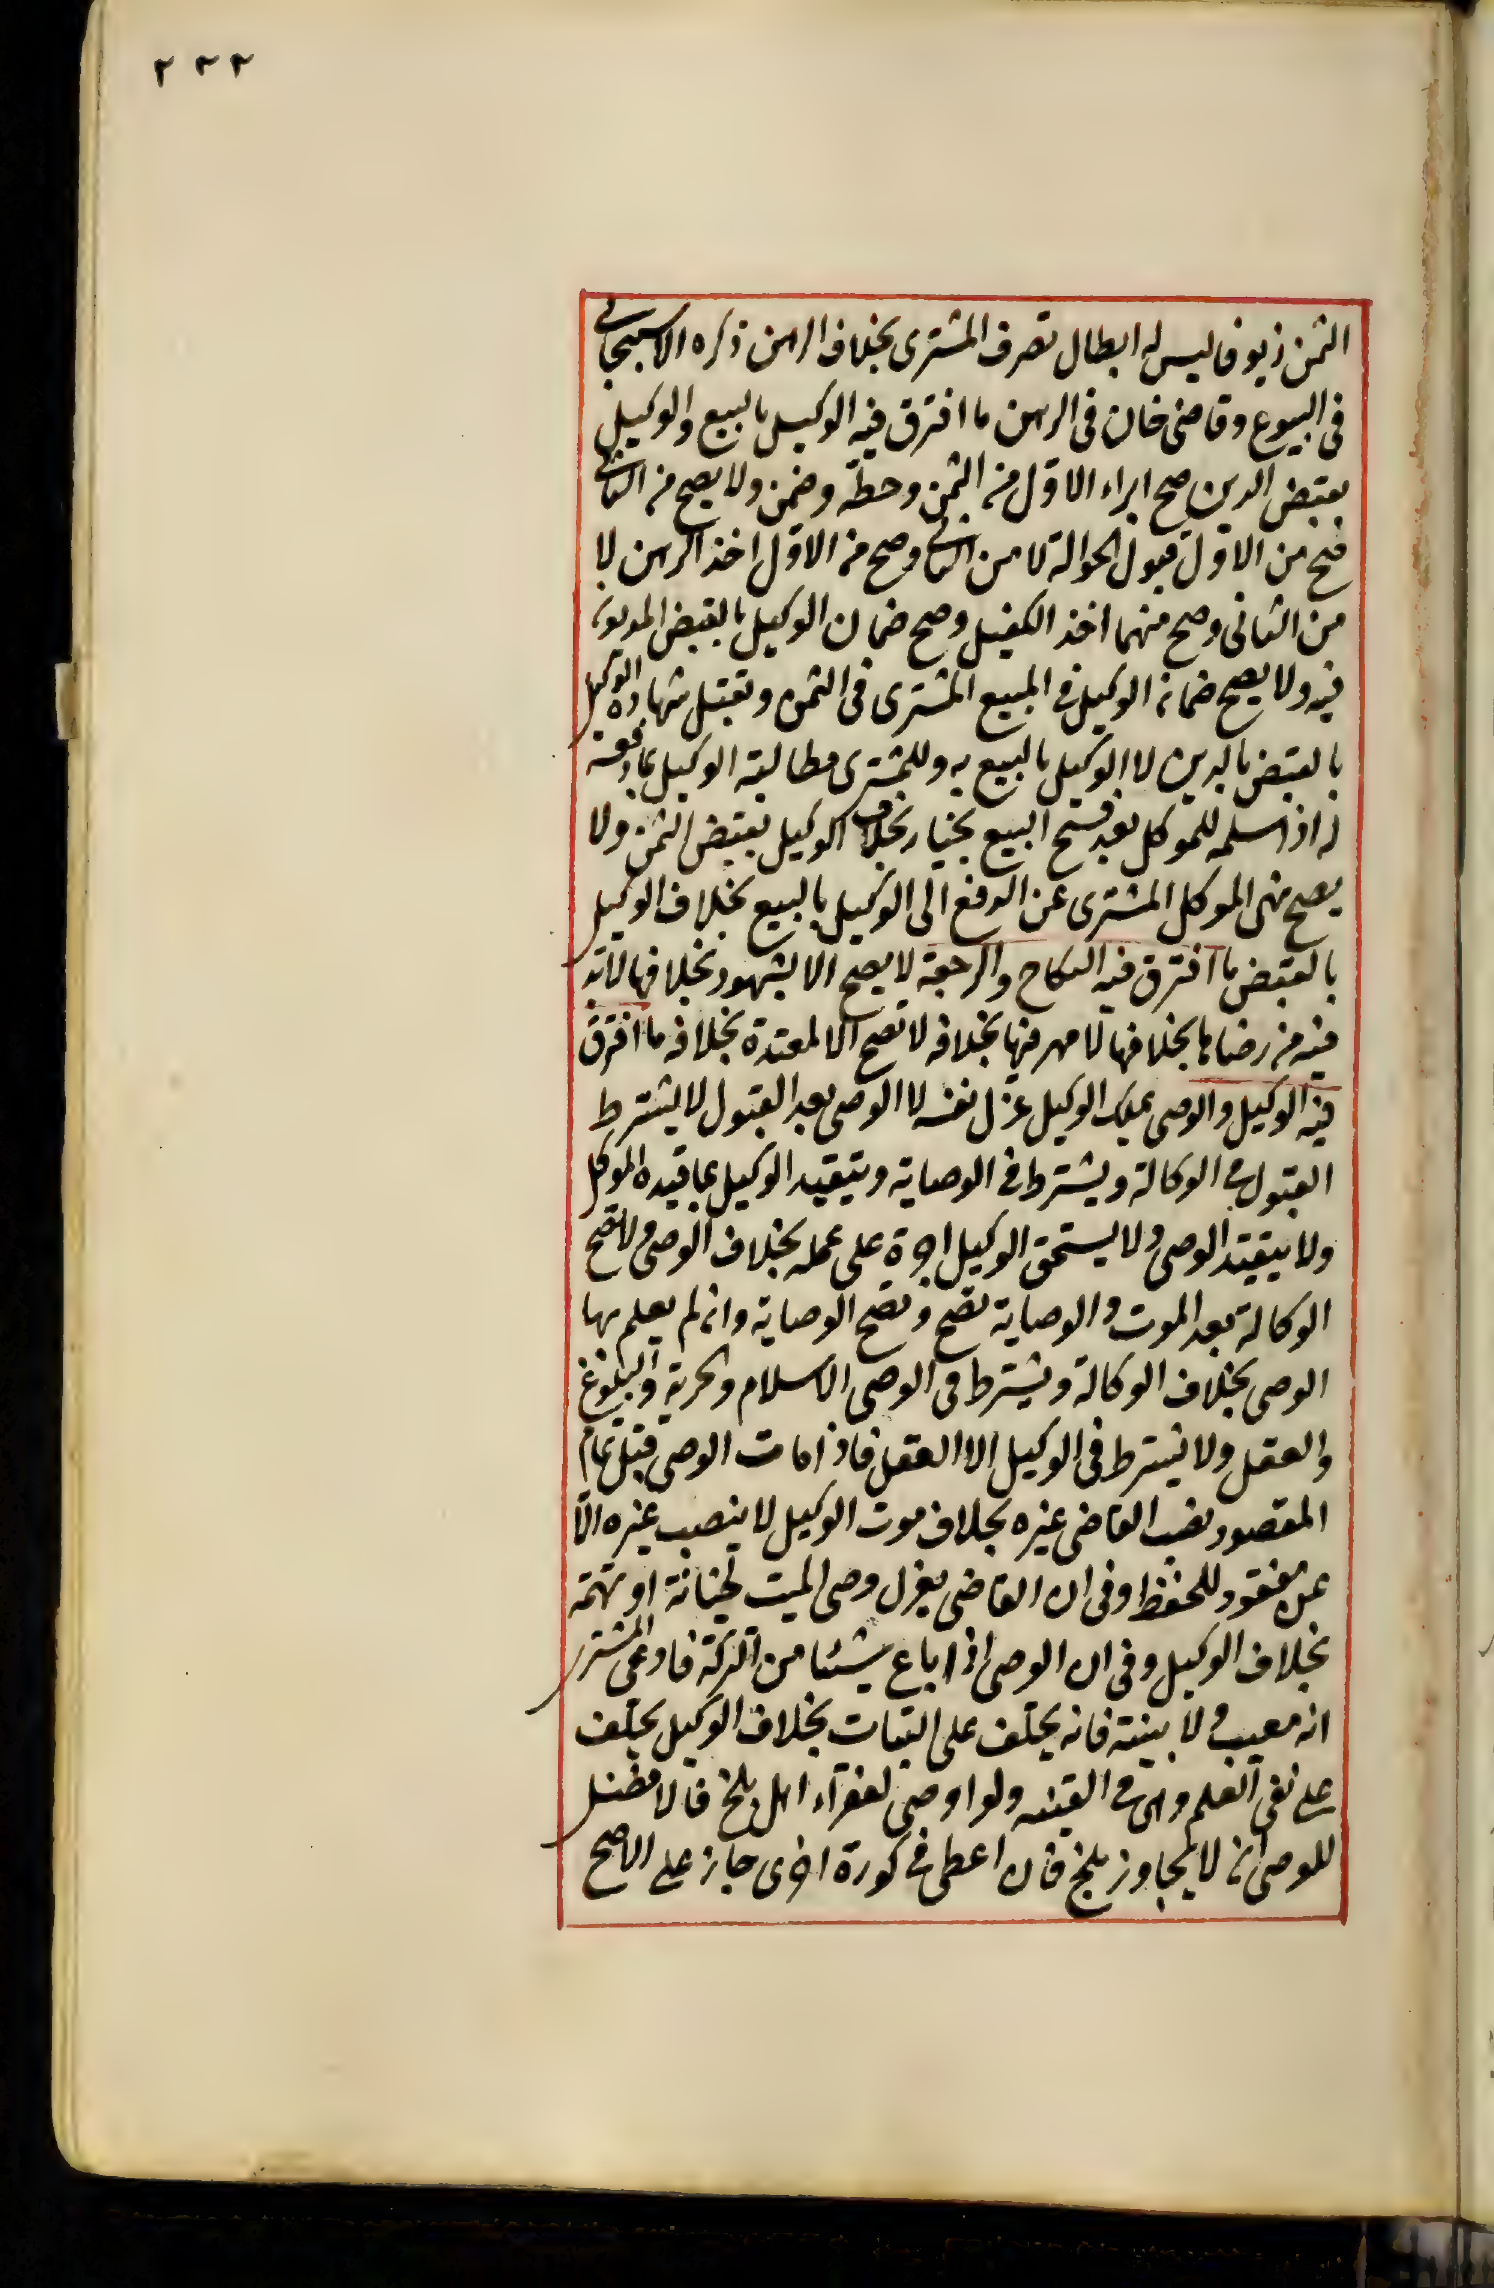 ٢٣٢
الثمن زيوفا ليس له ابطال تصرف المشترى بخلاف الراهن ذكره الاسبيجابى
فى البيوع وقاضى خان فى الرهن ما افترق فيه الوكيل بالبيع والوكيل
بقبض الدين صح ابراء الاول من الثمن وحطه وضمن ولا يصح من الثانى
فصح من الاول قبول الحوالة لا من الثانى وصح من الاول اخذ الرهن لا
من الثانى وصح منهما اخذ الكفيل وصح ضمان الوكيل بالقبض المديون
فيه ولا يصح ضمان الوكيل فى المبيع المشترى فى الثمن وتقبل شهادة الوكيل
بالقبض بالدين لا الوكيل بالبيع به وللمشترى مطالبة الوكيل بما دفعه
له اذا سلمه للموكل بعد فسخ البيع بخيار بخلاف الوكيل بقبض الثمن ولا
يصح نهى الموكل المشترى عن الدفع الى الوكيل بالبيع بخلاف الوكيل
بالقبض ما افترق فيه النكاح والرجعة لا يصح الا بشهود بخلافها لا بد
فيه من رضاها بخلافها لا مهر فيها بخلافه لا تصح الا لمعتدة بخلافه ما افترق
فيه الوكيل والوصى يملك الوكيل عزل نفسه لا الوصى بعد القبول لا يشترط
القبول فى الوكالة ويشترط فى الوصاية ويتقيد الوكيل بما قيده الموكل
ولا يتقيد الوصى ولا يستحق الوكيل اجرة على عمله بخلاف الوصى ولا تصح
الوكالة بعد الموت والوصاية تصح وتصح الوصاية وان لم يعلم بها
الوصى بخلاف الوكالة ويشترط فى الوصى الاسلام والحرية والبلوغ
والعقل ولا يشترط فى الوكيل الا العقل فاذا مات الوصى قبل تمام
المقصود نصب القاضى غيره بخلاف موت الوكيل لا ينصب غيره الا
عن مفقود للحفظ وفى ان القاضى يعزل وصى الميت لخيانة او تهمة
بخلاف الوكيل وفى ان الوصى اذا باع شيئا من التركة فادعى المشترى
انه معيب ولا بينة فانه يحلف على البتات بخلاف الوكيل يحلف
على نفى العلم وهى فى القنيه ولو اوصى لفقراء اهل بلخ فالافضل
للوصى ان لا يجاوز بلخ فان اعطى فى كورة اخرى جاز على الاصح